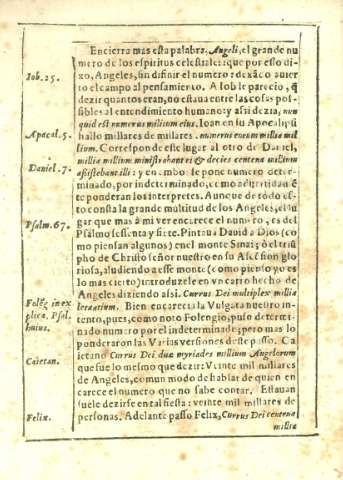 Encierra mas esta palabra. Angeli, el grande nu
mero de los espiritus celestiales: que por esso di
xo, Angeles, sin difinir el numero: dexãdo abier
Iob. 25.
to el campo al pensamiento. A Iob le parecio, q̃
dezir quantos eran, no estaua entre las cosas pos-
sibles al entendimiento humano: y assi dezia, nun
quid est numerus militum eius. Ioan en su Apocalypsi
Apocal. 5.
hallo millares de millares. numerus eorum millia mil
lium. Corresponde este lugar al otro de Daniel,
Daniel. 7.
millia millium ministrabant ei & decies centena millium
assistebant illi: y en ambos se pone numero deter-
minado, por indeterminado, como aduertidamẽ
te ponderan los interpretes. Aunque de todo es-
to consta la grande multitud de los Angeles, el lu
gar que mas a mi ver encarece el numero, es del
Psalm. 67.
Psalmo sesenta y siete. Pinta a Dauid a Dios (co
mo piensan algunos) en el monte Sinai; ò el triũ
pho de Christo señor nuestro en su Ascẽsion glo
riosa, aludiendo a esse monte (como pienso yo es
lo mas cierto) introduzele en vn carro hecho de
Angeles diziendo assi. Currus Dei multiplex millia
Folẽg. in ex
plica. Psal.
huius.
lætantium. Bien encarecia la Vulgata nuestro in-
tento, pues, como noto Folengio, puso determi-
nado numero por el indeterminado; pero mas lo
ponderaran las Varias versiones deste passo. Ca
Caietan.
ietano Currus Dei duæ myriades millium Angelorum
que fue lo mesmo que dezir: Veinte mil millares
de Angeles, comun modo de hablar de quien en
carece el numero que no sabe contar. Estauan
suele dezirse en tal fiesta: veinte mil millares de
Felix.
personas. Adelante passo Felix, Currus Dei centena
millia